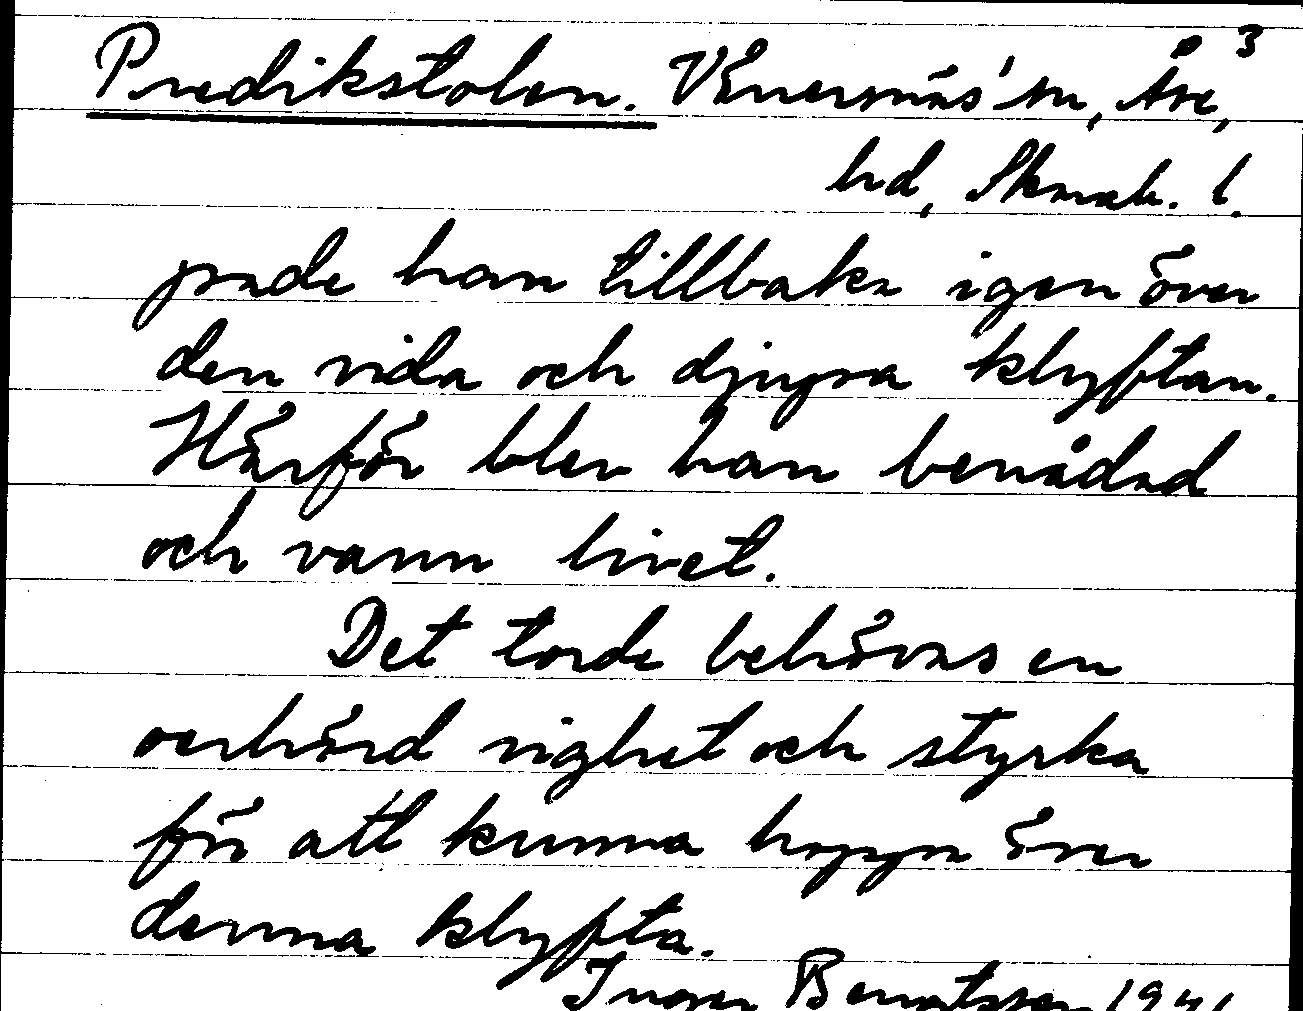 Predikstolen. Vånevik's sn, Åse, 3
hd, Skarab. l.
pade han tillbaka igen över
den vida och djupa klyftan.
Härför blev han benådad
och vann livet.
Det torde behövas en
oerhörd vighet och styrka
för att kunna hoppa över
denna klyfta.
Inger Bengtsson 1941